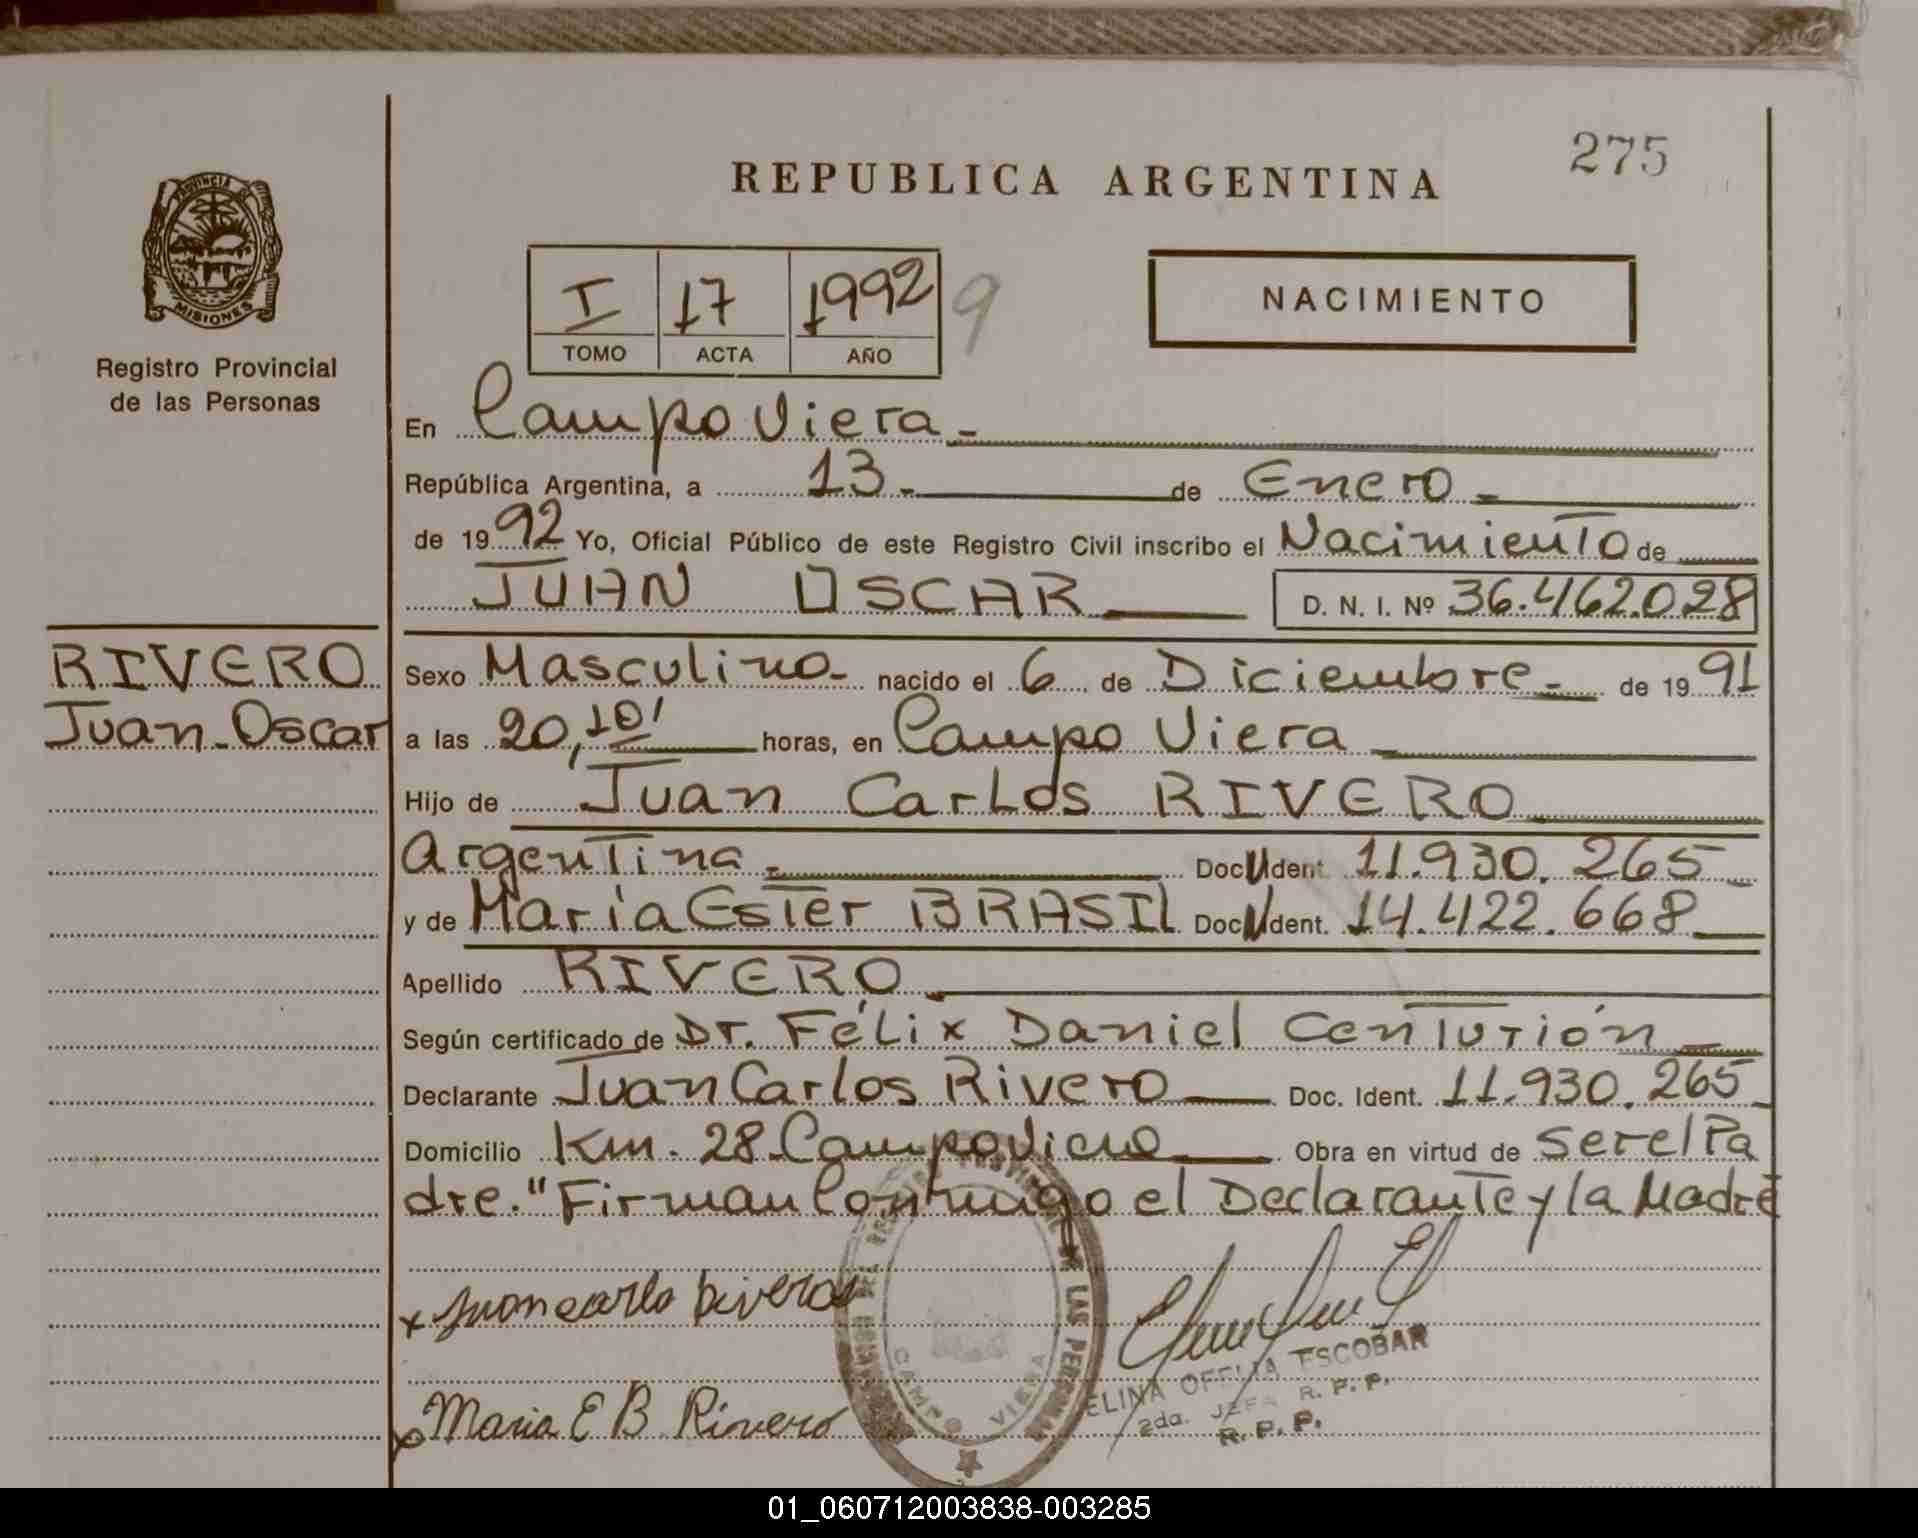 275
REPUBLICA ARGENTINA
PROVINCIA D
MISIONES
Registro Provincial
de las Personas
I 17 1992 9
TOMO ACTA AÑO
NACIMIENTO
En Campo Viera -
República Argentina, a 13 - de Enero -
de 1992 Yo, Oficial Público de este Registro Civil inscribo el Nacimiento de
JUAN OSCAR D. N. I. Nº 36.462.028
RIVERO
Juan Oscar
Sexo Masculino - nacido el 6 de Diciembre - de 1991
a las 20,10' horas, en Campo Viera
Hijo de Juan Carlos RIVERO
Argentina - Doc. Ident. 11.930.265
y de María Ester BRASIL Doc. Ident. 14.422.668
Apellido RIVERO
Según certificado de Dr. Félix Daniel Centurión
Declarante Juan Carlos Rivero Doc. Ident. 11.930.265
Domicilio Km. 28 Campo Viera Obra en virtud de ser el Pa
dre." Firman Conmigo el Declarante y la Madre
x Juan carlo Riveros
LAS PERSONAS
CAMPO VIERA
ELINA OFELIA ESCOBAR
2da. JEFA R. P. P.
R. P. P.
x Maria E B Rivero
01_060712003838-003285